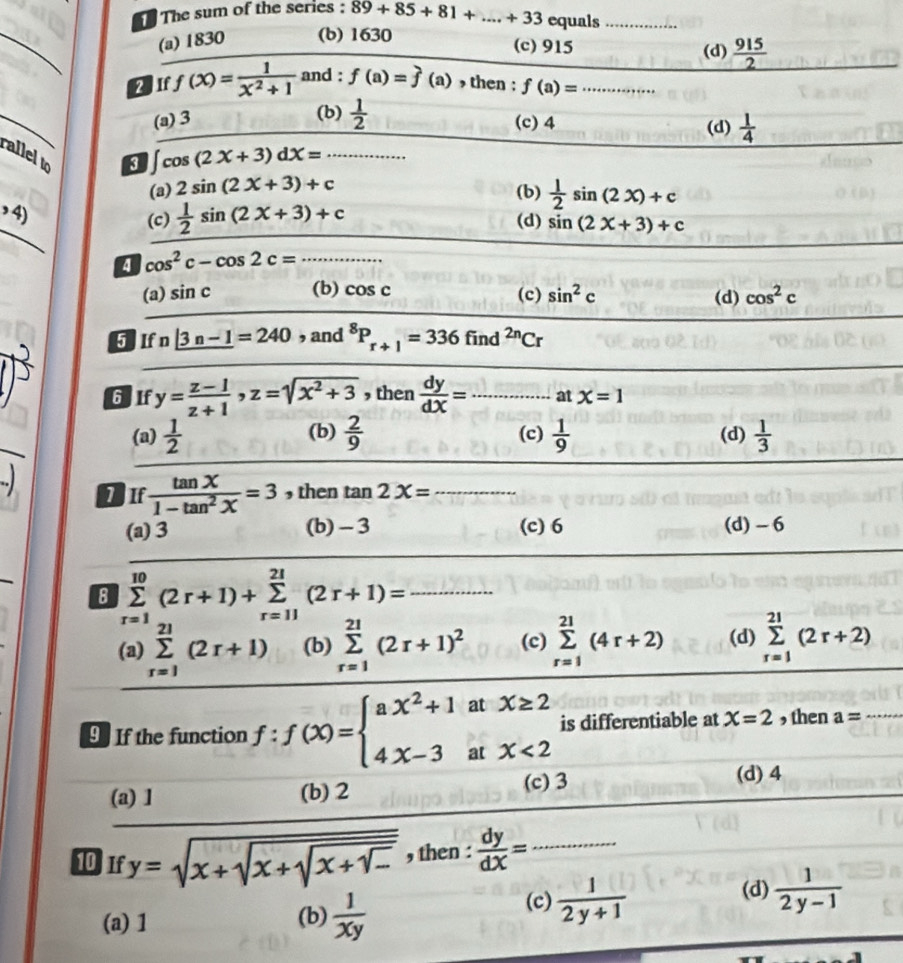 1 The sum of the series : 89 + 85 + 81 + .... + 33 equals ..............
(a) 1830 (b) 1630 (c) 915 (d) 915/2
2 If f (X) = 1/(X² + 1) and : f (a) = f̀ (a) , then : f (a) = ..............
(a) 3 (b) 1/2 (c) 4 (d) 1/4
rallel to
3 ∫ cos (2 X + 3) dX = ..............
(a) 2 sin (2 X + 3) + c (b) 1/2 sin (2 X) + c
, 4)
(c) 1/2 sin (2 X + 3) + c (d) sin (2 X + 3) + c
4 cos² c − cos 2 c = ..............
(a) sin c (b) cos c (c) sin² c (d) cos² c
5 If n |3 n − 1 = 240 , and ⁸P r + 1 = 336 find ²ⁿCr
6 If y = (z − 1)/(z + 1) , z = √(X² + 3) , then dy/dX = .............. at X = 1
(a) 1/2 (b) 2/9 (c) 1/9 (d) 1/3
7 If tan X/(1 − tan² X) = 3 , then tan 2 X = ..............
(a) 3 (b) − 3 (c) 6 (d) − 6
8 10 Σ r = 1 (2 r + 1) + 21 Σ r = 11 (2 r + 1) = ..............
(a) 21 Σ r = 1 (2 r + 1) (b) 21 Σ r = 1 (2 r + 1)² (c) 21 Σ r = 1 (4 r + 2) (d) 21 Σ r = 1 (2 r + 2)
9 If the function f : f (X) = { a X² + 1 at X ≥ 2
4 X − 3 at X < 2 is differentiable at X = 2 , then a = .......
(a) 1 (b) 2 (c) 3 (d) 4
10 If y = √(X + √(X + √(X + √...))) , then : dy/dX = ..............
(a) 1 (b) 1/Xy (c) 1/(2 y + 1) (d) 1/(2 y − 1)